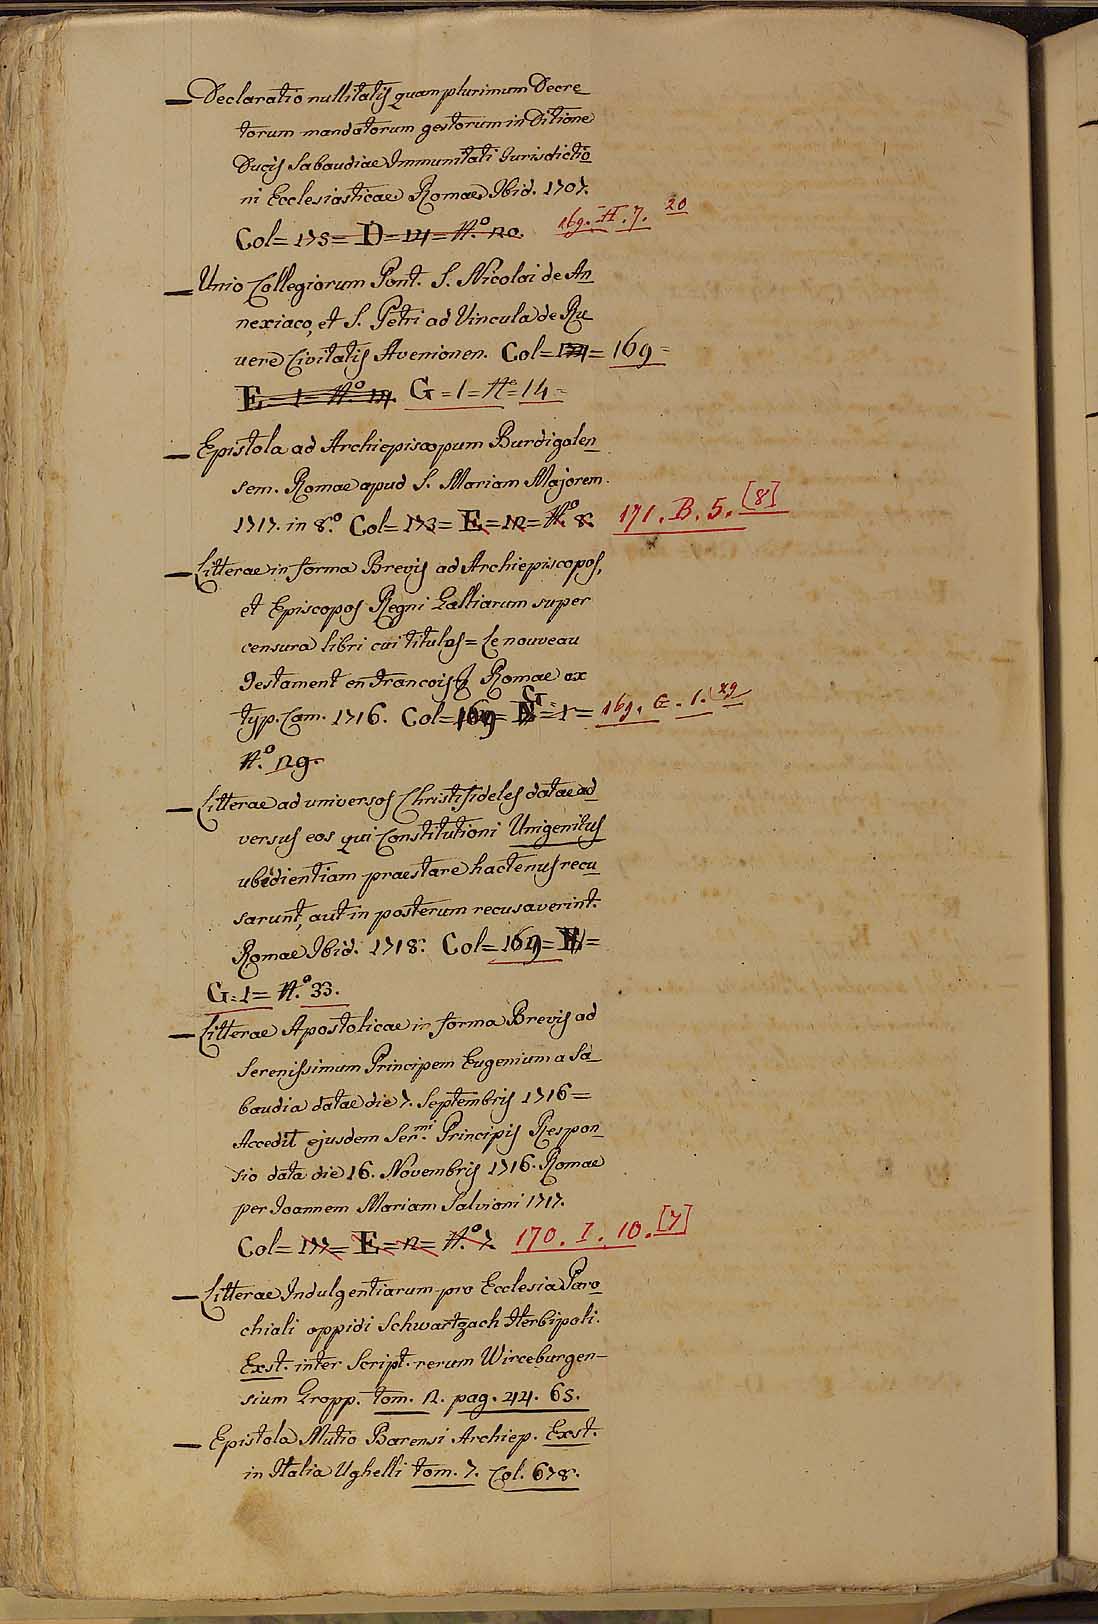 — Declaratio nullitatis quamplurimum Decre
torum mandatorum gestorum in Ditione
Ducis Sabaudiae Immunitati Jurisdictio
ni Ecclesiasticae Romae Ibid. 1707.
Col = 175 = D = 121 = N.º 20. 169. H. 7. 20
— Unio Collegiorum Pont. S. Nicolai de An
nexiaco, et S. Petri ad Vincula de Ru
vere Civitatis Avenionen. Col = = 169 =
E = 1 = N.º G = 1 = Nº = 14 =
— Epistola ad Archiepiscopum Burdigalen
sem. Romae apud S. Mariam Majorem.
1717. in 8.º Col = 173 = E = 12 = N.º 8. 171. B. 5. [8]
— Litterae in forma Brevis ad Archiepiscopos,
et Episcopos Regni Galliarum super
censura libri cui titulus = Le nouveau
Testament en Francois & Romae ex
typ. Cam. 1716. Col = 169 = G = 1 = 169. G. 1. 29
N.º 29.
— Litterae ad universos Christifideles datae ad
versus eos qui Constitutioni Unigenitus
obedientiam praestare hactenus recu
sarunt, aut in posterum recusaverint.
Romae Ibid. 1718. Col = 169 =
G = 1 = N.º 33.
— Litterae Apostolicae in forma Brevis ad
Serenissimum Principem Eugenium a Sa
baudia datae die 7. Septembris 1716 =
Accedit ejusdem Ser.mi Principis Respon
sio data die 16. Novembris 1716. Romae
per Joannem Mariam Salvioni 1717.
Col = 177 = E = 12 = N.º 7. 170. I. 10. [7]
— Litterae Indulgentiarum pro Ecclesia Paro
chiali oppidi Schwartzach Herbipoli.
Exst. inter Script. rerum Wirceburgen-
sium Gropp. tom. 2. pag. 44. 65.
— Epistola Mutio Barensi Archiep. Exst.
in Italia Ughelli tom. 7. Col. 678.